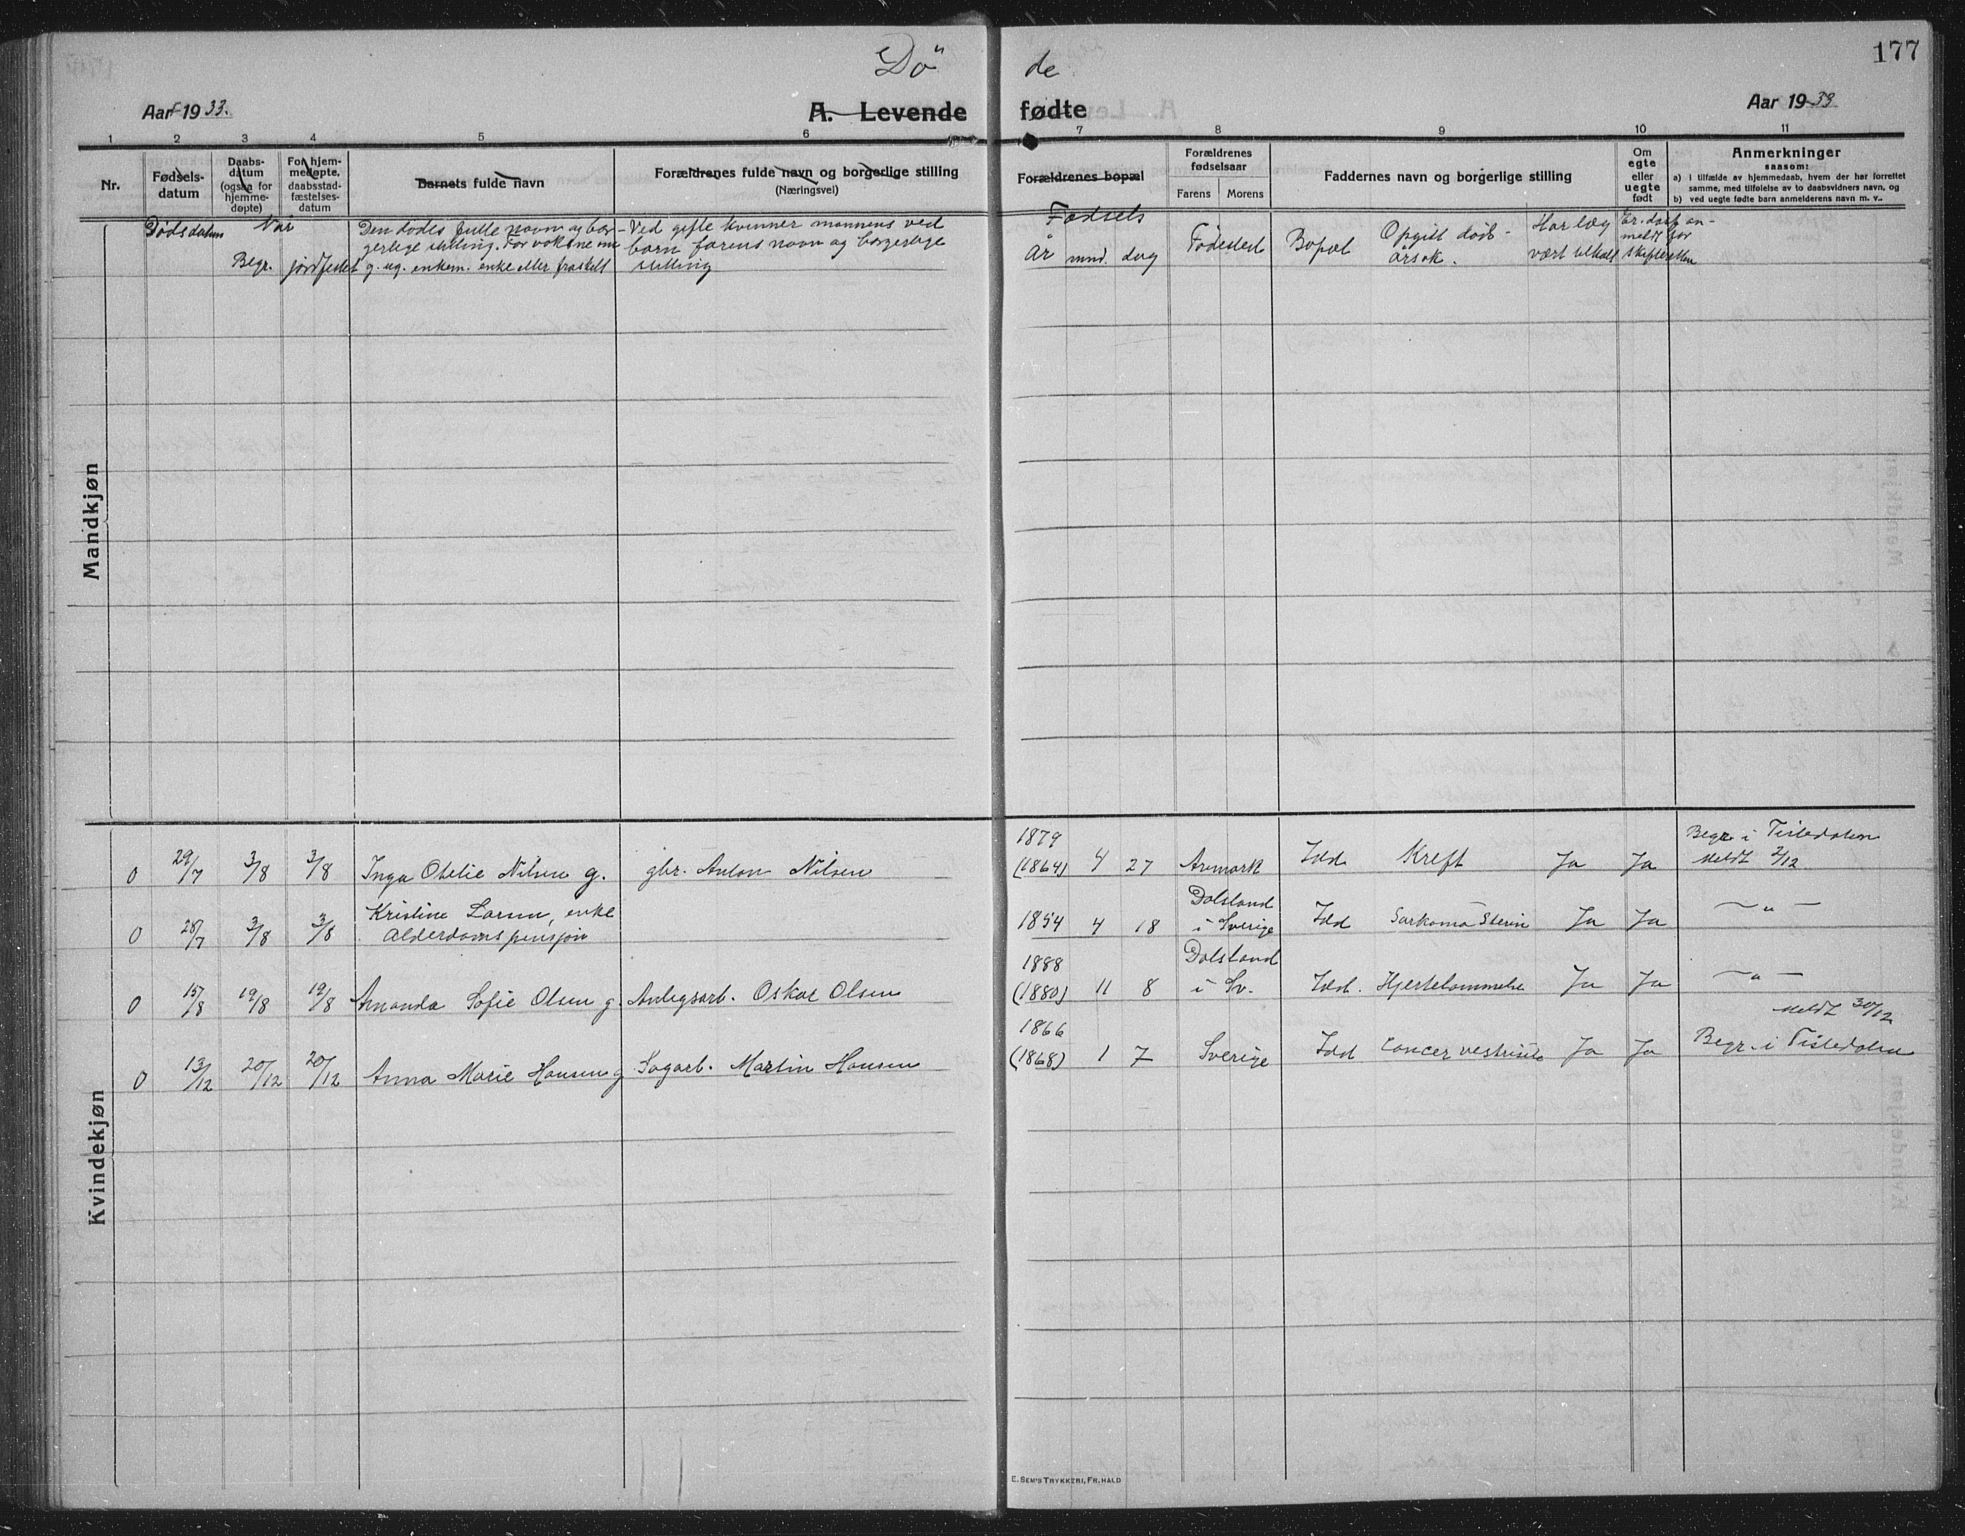 Dø de
177
Aar 1933.
A. Levende fødte
Aar 1933
1 2 3 4 5 6 7 8 9 10 11
Nr.
Fødsels-
datum
Daabs-
datum
(ogsaa for
hjemme-
døpte)
For hjem-
medøpte,
daabsstad-
fæstelses-
datum
Barnets fulde navn
Forældrenes fulde navn og borgerlige stilling
(Næringsvei)
Forældrenes bopæl
Forældrenes
fødselsaar
Farens Morens
Faddernes navn og borgerlige stilling
Om
egte
eller
uegte
født
Anmerkninger
saasom:
a) i tilfælde av hjemmedaab, hvem der har forrettet
samme, med tilføielse av to daabsvidners navn, og
b) ved uegte fødte barn anmelderens navn m. v..
Dødsdatum
Når
Begr. jordfestet
Den dødes fulle navn og bor-
gerlige stilling. For voksne om
g. ug. enkem. enke eller fraskilt
Ved gifte kvinner mannens ved
barn farens navn og borgerlige
stilling
Fødsels
År mnd. dag
Fødested
Bopæl
Opgitt døds-
årsak.
Har læg
vært tilkalt
Er dødf an-
meldt for
skifteretten
Mandkjøn
Kvindekjøn
0 29/7 3/8 3/8 Inga Otelie Nilsen g. gbr. Anton Nilsen 1879 (1864) 4 27 Aremark Idd Kreft Ja Ja Begr. i Tistedalen Meldt 2/12
0 28/7 3/8 3/8 Kristine Larsen, enke
Alderdomspensjon 1854 4 18 Dalsland i Sverige Idd Sarkoma Ja Ja — " —
0 15/8 19/8 19/8 Amanda Sofie Olsen g. Anlegsarb. Oskar Olsen 1888 (1880) 11 8 Dalsland i Sv. Idd. Hjertelammelse Ja Ja — " —
0 13/12 20/12 20/12 Anna Marie Hansen g Sagarb. Martin Hansen 1866 (1868) 1 7 Sverige Idd Cancer Ja Ja Meldt 30/12
Begr. i Tistedalen
E. Sem's Trykkeri, Fr. Hald